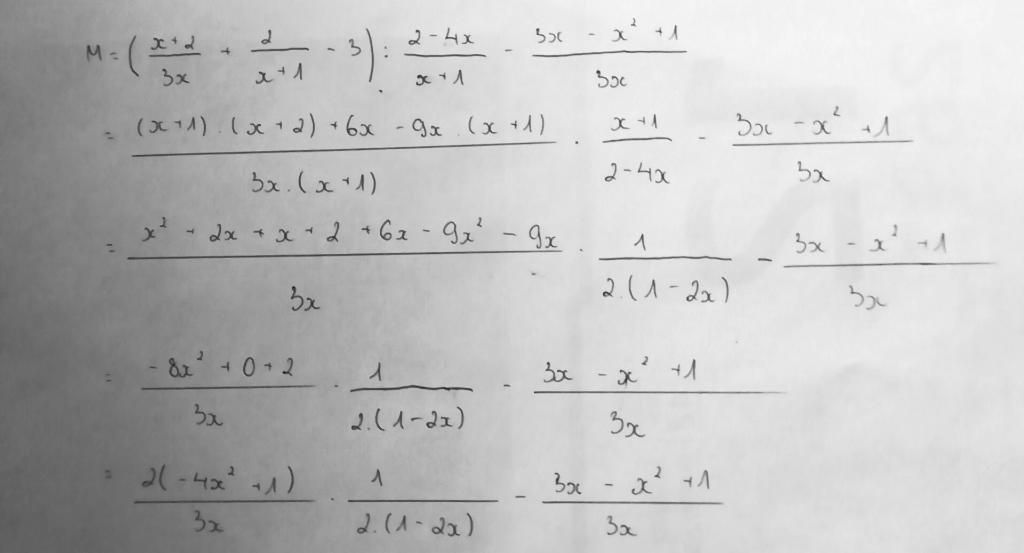 M = ( (x+2)/(3x) + 2/(x+1) - 3 ) : (2-4x)/(x+1) - (3x - x² + 1)/(3x)
= ((x+1) . (x+2) + 6x - 9x . (x+1))/(3x.(x+1)) . (x+1)/(2-4x) - (3x - x² + 1)/(3x)
= (x² + 2x + x + 2 + 6x - 9x² - 9x)/(3x) . 1/(2.(1-2x)) - (3x - x² + 1)/(3x)
= (-8x² + 0 + 2)/(3x) . 1/(2.(1-2x)) - (3x - x² + 1)/(3x)
= (2(-4x² + 1))/(3x) . 1/(2.(1-2x)) - (3x - x² + 1)/(3x)